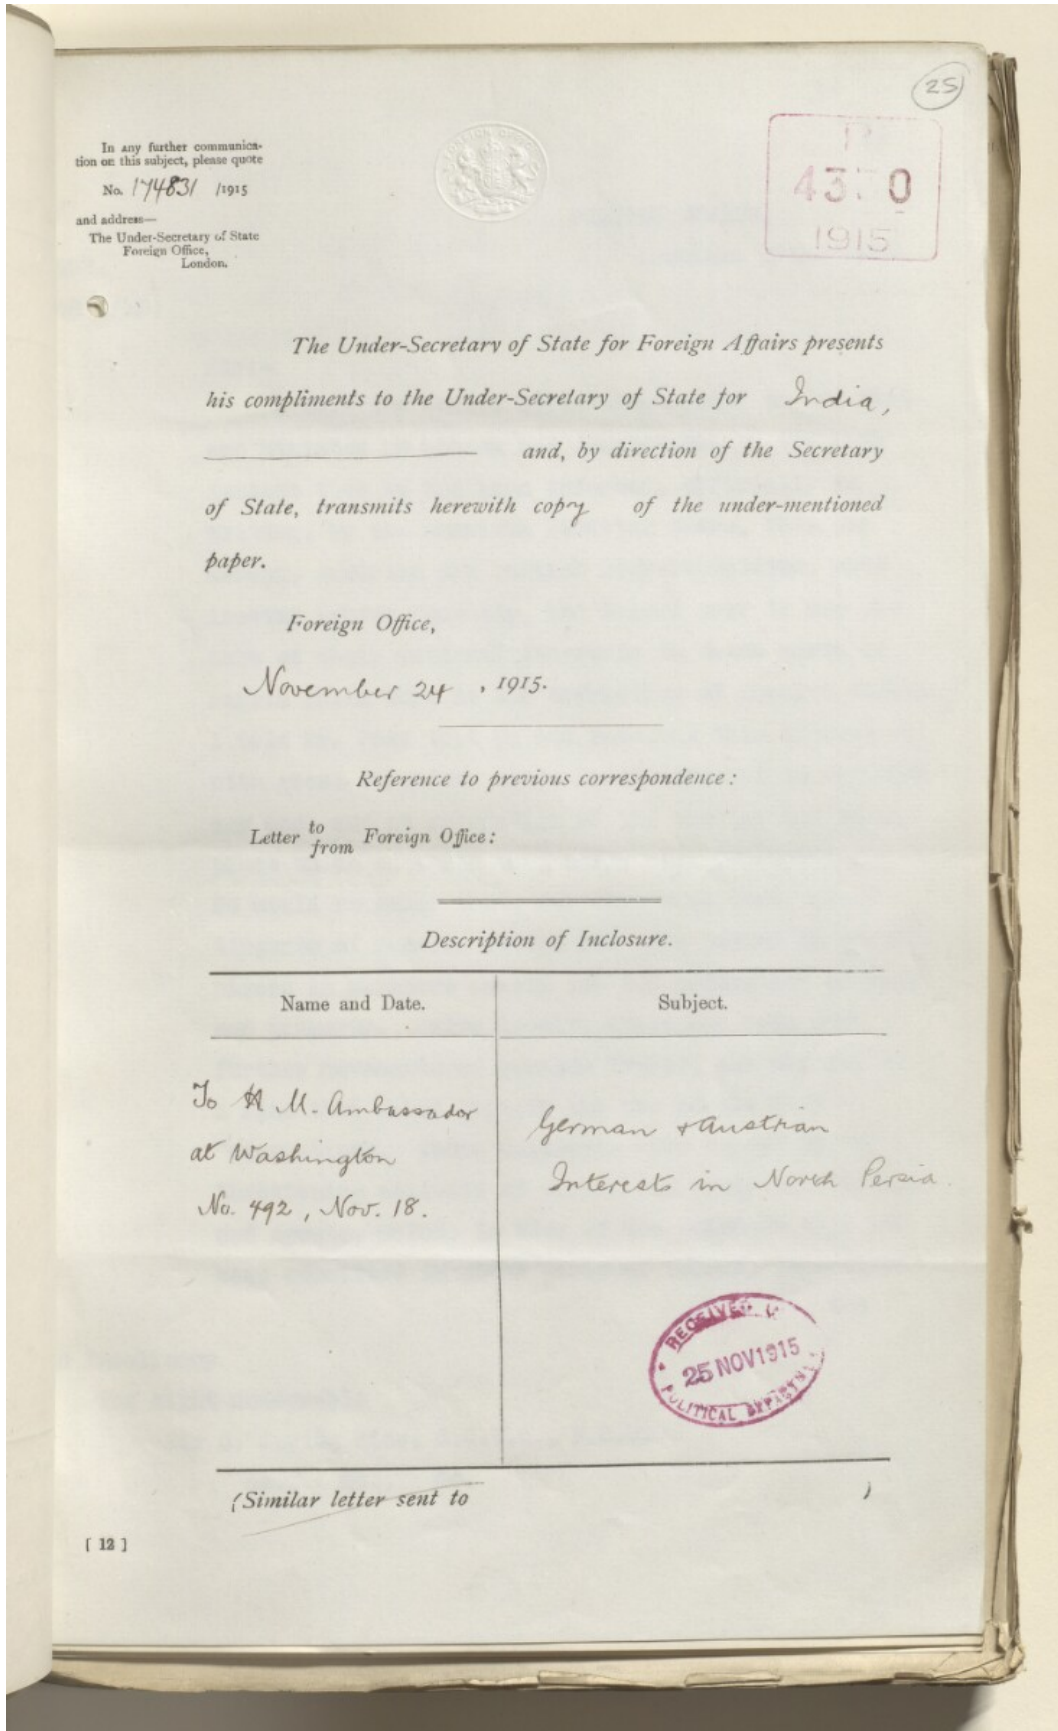 25
In any further communica-
tion on this subject, please quote
No. 174831 /1915
and address—
The Under-Secretary of State
Foreign Office,
London.
P
43 0
1915
The Under-Secretary of State for Foreign Affairs presents
his compliments to the Under-Secretary of State for India,
and, by direction of the Secretary
of State, transmits herewith copy of the under-mentioned
paper.
Foreign Office,
November 24 , 1915.
Reference to previous correspondence :
Letter to from Foreign Office :
Description of Inclosure.
Name and Date. Subject.
To H M. Ambassador
at Washington
No. 492, Nov. 18.
German & Austrian
Interests in North Persia.
RECEIVED
25 NOV 1915
POLITICAL DEPARTMENT
(Similar letter sent to )
[ 12 ]